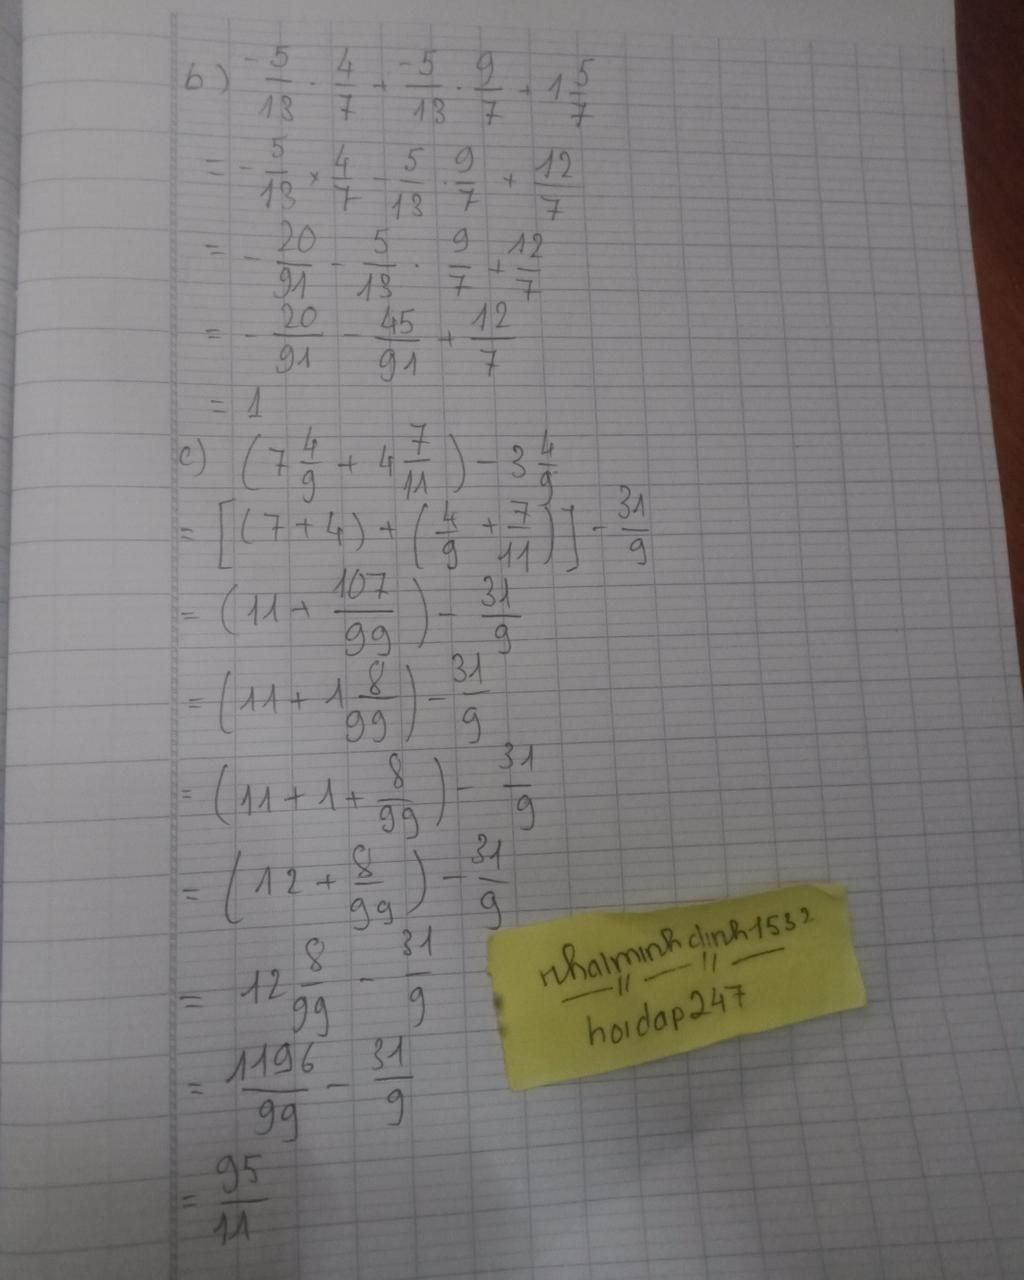 b) -5/13 . 4/7 + -5/13 . 9/7 + 1 5/7
= - 5/13 × 4/7 - 5/13 . 9/7 + 12/7
= - 20/91 - 5/13 . 9/7 + 12/7
= - 20/91 - 45/91 + 12/7
= 1
c) (7 4/9 + 4 7/11) - 3 4/9
= [(7 + 4) + (4/9 + 7/11)] - 31/9
= (11 + 107/99) - 31/9
= (11 + 1 8/99) - 31/9
= (11 + 1 + 8/99) - 31/9
= (12 + 8/99) - 31/9
= 12 8/99 - 31/9
= 1196/99 - 31/9
= 95/11
nhalminhdinh1532
hoidap247